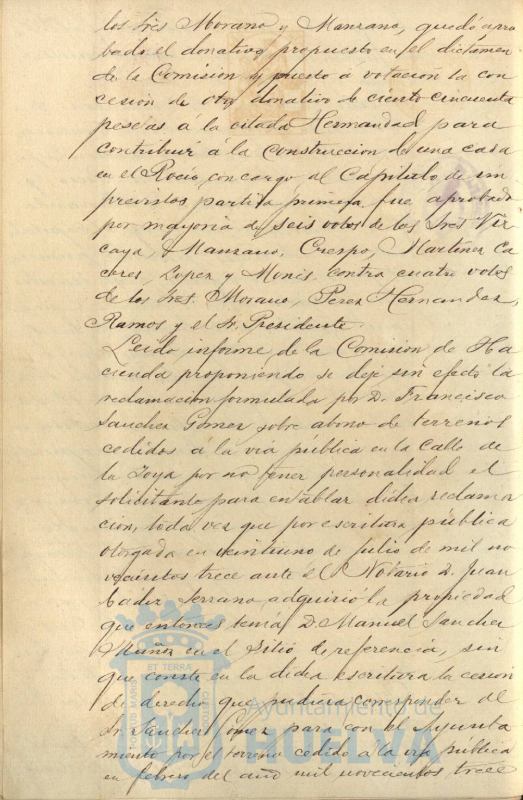 los Sres Morano y Manzano, quedó apro
bado el donativo propuesto en el dictamen
de la Comisión y puesto á votación la con
cesión de otro donativo de ciento cincuenta
pesetas á la citada Hermandad para
contribuir á la construccion de una casa
en el Rocio, con cargo al Capitulo de im
previstos partida primera fue aprobado
por mayoria de seis votos de los Sres Viz
caya, Manzano, Crespo, Martinez Ca
ceres, Lopez y Monis contra cuatro votos
de los Sres. Morano, Perez Hernandez,
Ramos y el Sr. Presidente.
Leido informe de la Comisión de Ha
cienda proponiendo se deje sin efecto la
reclamacion formulada por D. Francisco
Sanchez Gomez sobre abono de terrenos
cedidos á la via pública en la Calle de
la Joya por no tener personalidad el
solicitante para entablar dicha reclama
cion, toda vez que por escritura pública
otorgada en veintiuno de julio de mil no
vecientos trece ante el Notario D. Juan
Cadiz Serrano, adquirió la propiedad
que entonces tenia D. Manuel Sanchez
Muñoz en el sitio de referencia, sin
que conste en la dicha escritura la cesión
de derecho que pudiera corresponder al
Sr. Sanchez Gomez para con el Ayunta
miento por el terreno cedido á la via pública
en febrero del año mil novecientos trece
Ayuntamiento de
HUELVA
PORTUS MARIS
ET TERRÆ
CUSTODIA